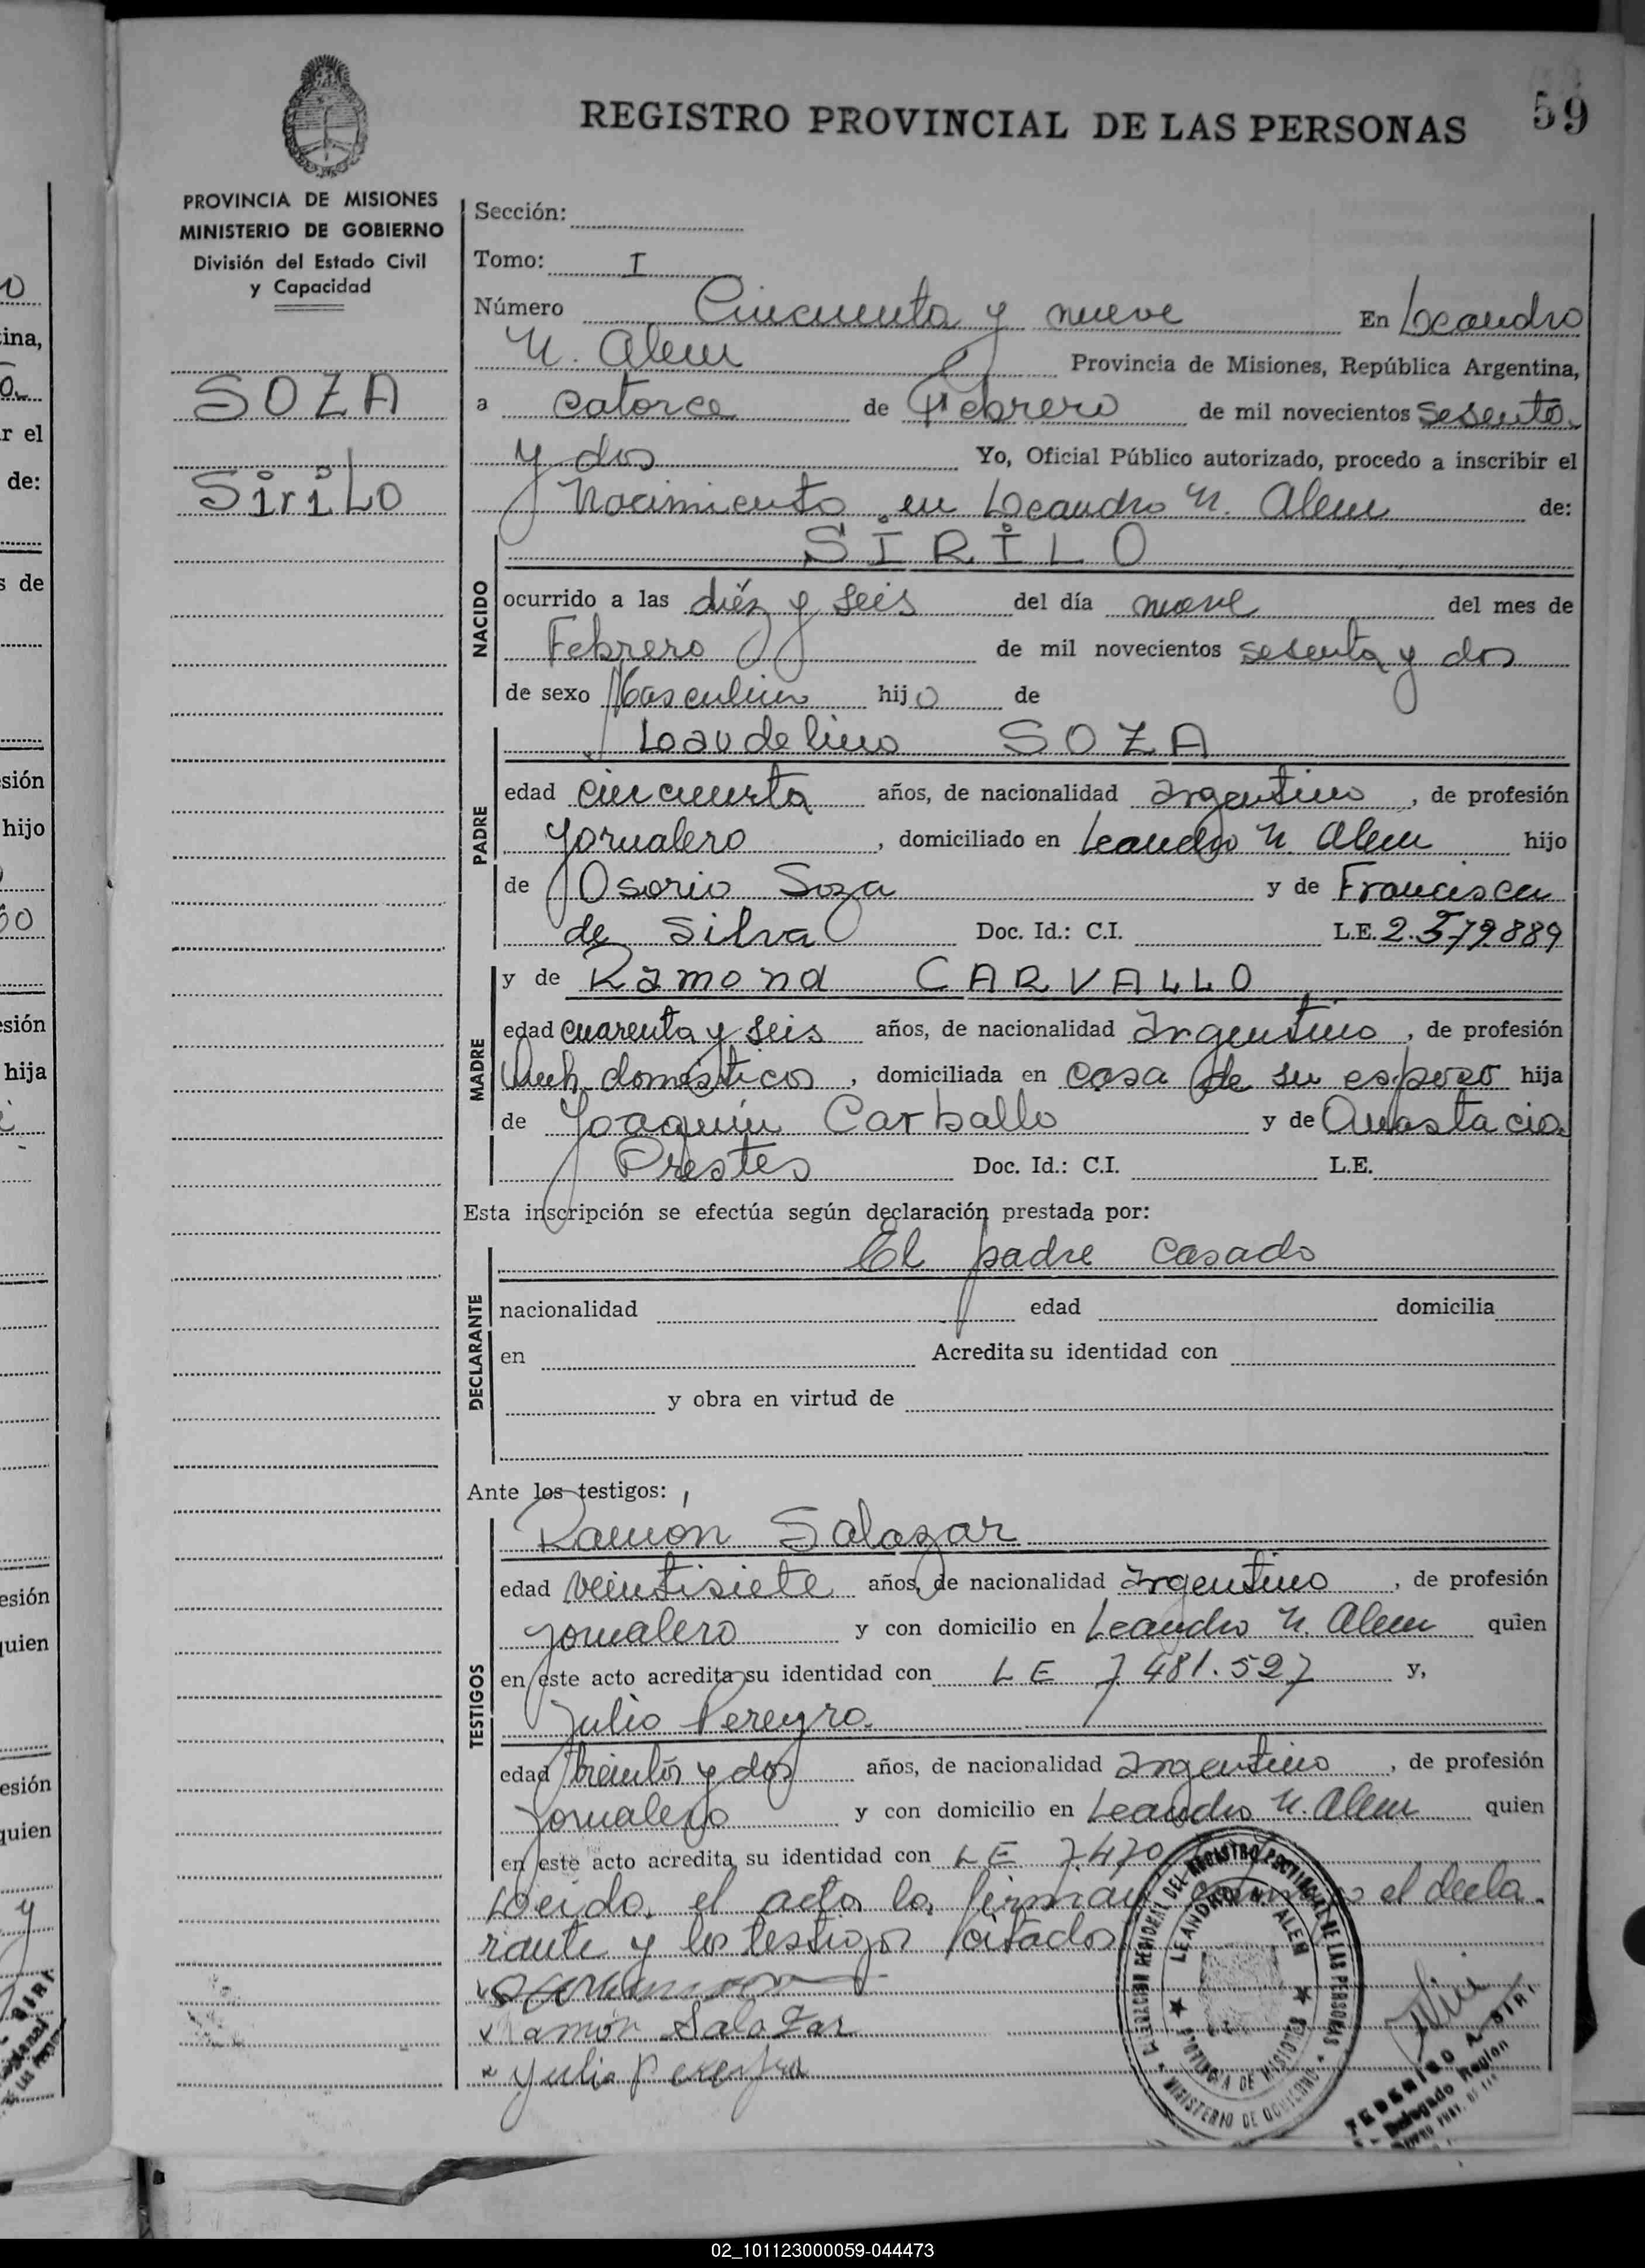 59
REGISTRO PROVINCIAL DE LAS PERSONAS
PROVINCIA DE MISIONES
MINISTERIO DE GOBIERNO
División del Estado Civil
y Capacidad
SOZA
SiriLo
Sección:
Tomo: I
Número Cincuenta y nueve En Leandro
N. Alem Provincia de Misiones, República Argentina,
a catorce de Febrero de mil novecientos sesenta
y dos Yo, Oficial Público autorizado, procedo a inscribir el
Nacimiento en Leandro N. Alem de:
SIRILO
NACIDO
ocurrido a las diéz y seis del día nueve del mes de
Febrero de mil novecientos sesenta y dos
de sexo Masculino hijo de
Loaudelino SOZA
PADRE
edad cincuenta años, de nacionalidad argentino, de profesión
Jornalero, domiciliado en Leandro N. Alem hijo
de Osorio Soza y de Francisca
de Silva Doc. Id.: C.I. L.E. 2.579889
y de Ramona CARVALLO
MADRE
edad cuarenta y seis años, de nacionalidad argentina, de profesión
domésticos, domiciliada en casa de su esposo hija
de Joaquín Carballo y de Anastacia
Prestes Doc. Id.: C.I. L.E.
Esta inscripción se efectúa según declaración prestada por:
El padre casado
DECLARANTE
nacionalidad edad domicilia
en Acredita su identidad con
y obra en virtud de
Ante los testigos:
Ramón Salazar
TESTIGOS
edad veintisiete años, de nacionalidad argentino, de profesión
jornalero y con domicilio en Leandro N. Alem quien
en este acto acredita su identidad con LE 7.481.527 y,
Julio Pereyra
edad treinta y dos años, de nacionalidad argentino, de profesión
Jornalero y con domicilio en Leandro N. Alem quien
en este acto acredita su identidad con LE 7.470
Leída el acta la firman el decla
rante y los testigos citados
Ramón Salazar
Yulio Pereyra
REGISTRO PROVINCIAL DE LAS PERSONAS
LEANDRO N. ALEM
PROVINCIA DE MISIONES
MINISTERIO DE GOBIERNO
FEDERICO A. SIRI
Delegado Region
02_101123000059-044473